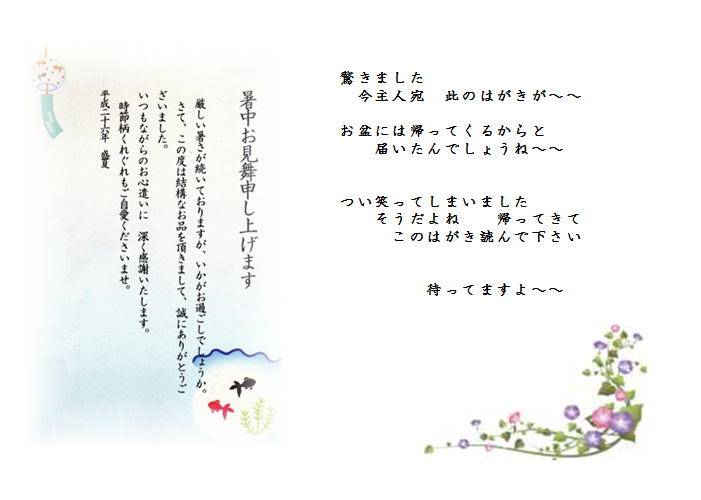 暑中お見舞申し上げます
厳しい暑さが続いておりますが、いかがお過ごしでしょうか。
さて、この度は結構なお品を頂きまして、誠にありがとうご
ざいました。
いつもながらのお心遣いに　深く感謝いたします。
時節柄くれぐれもご自愛くださいませ。
平成二十六年　盛夏
驚きました
今主人宛　此のはがきが～～
お盆には帰ってくるからと
届いたんでしょうね～～
つい笑ってしまいました
そうだよね　　帰ってきて
このはがき読んで下さい
待ってますよ～～